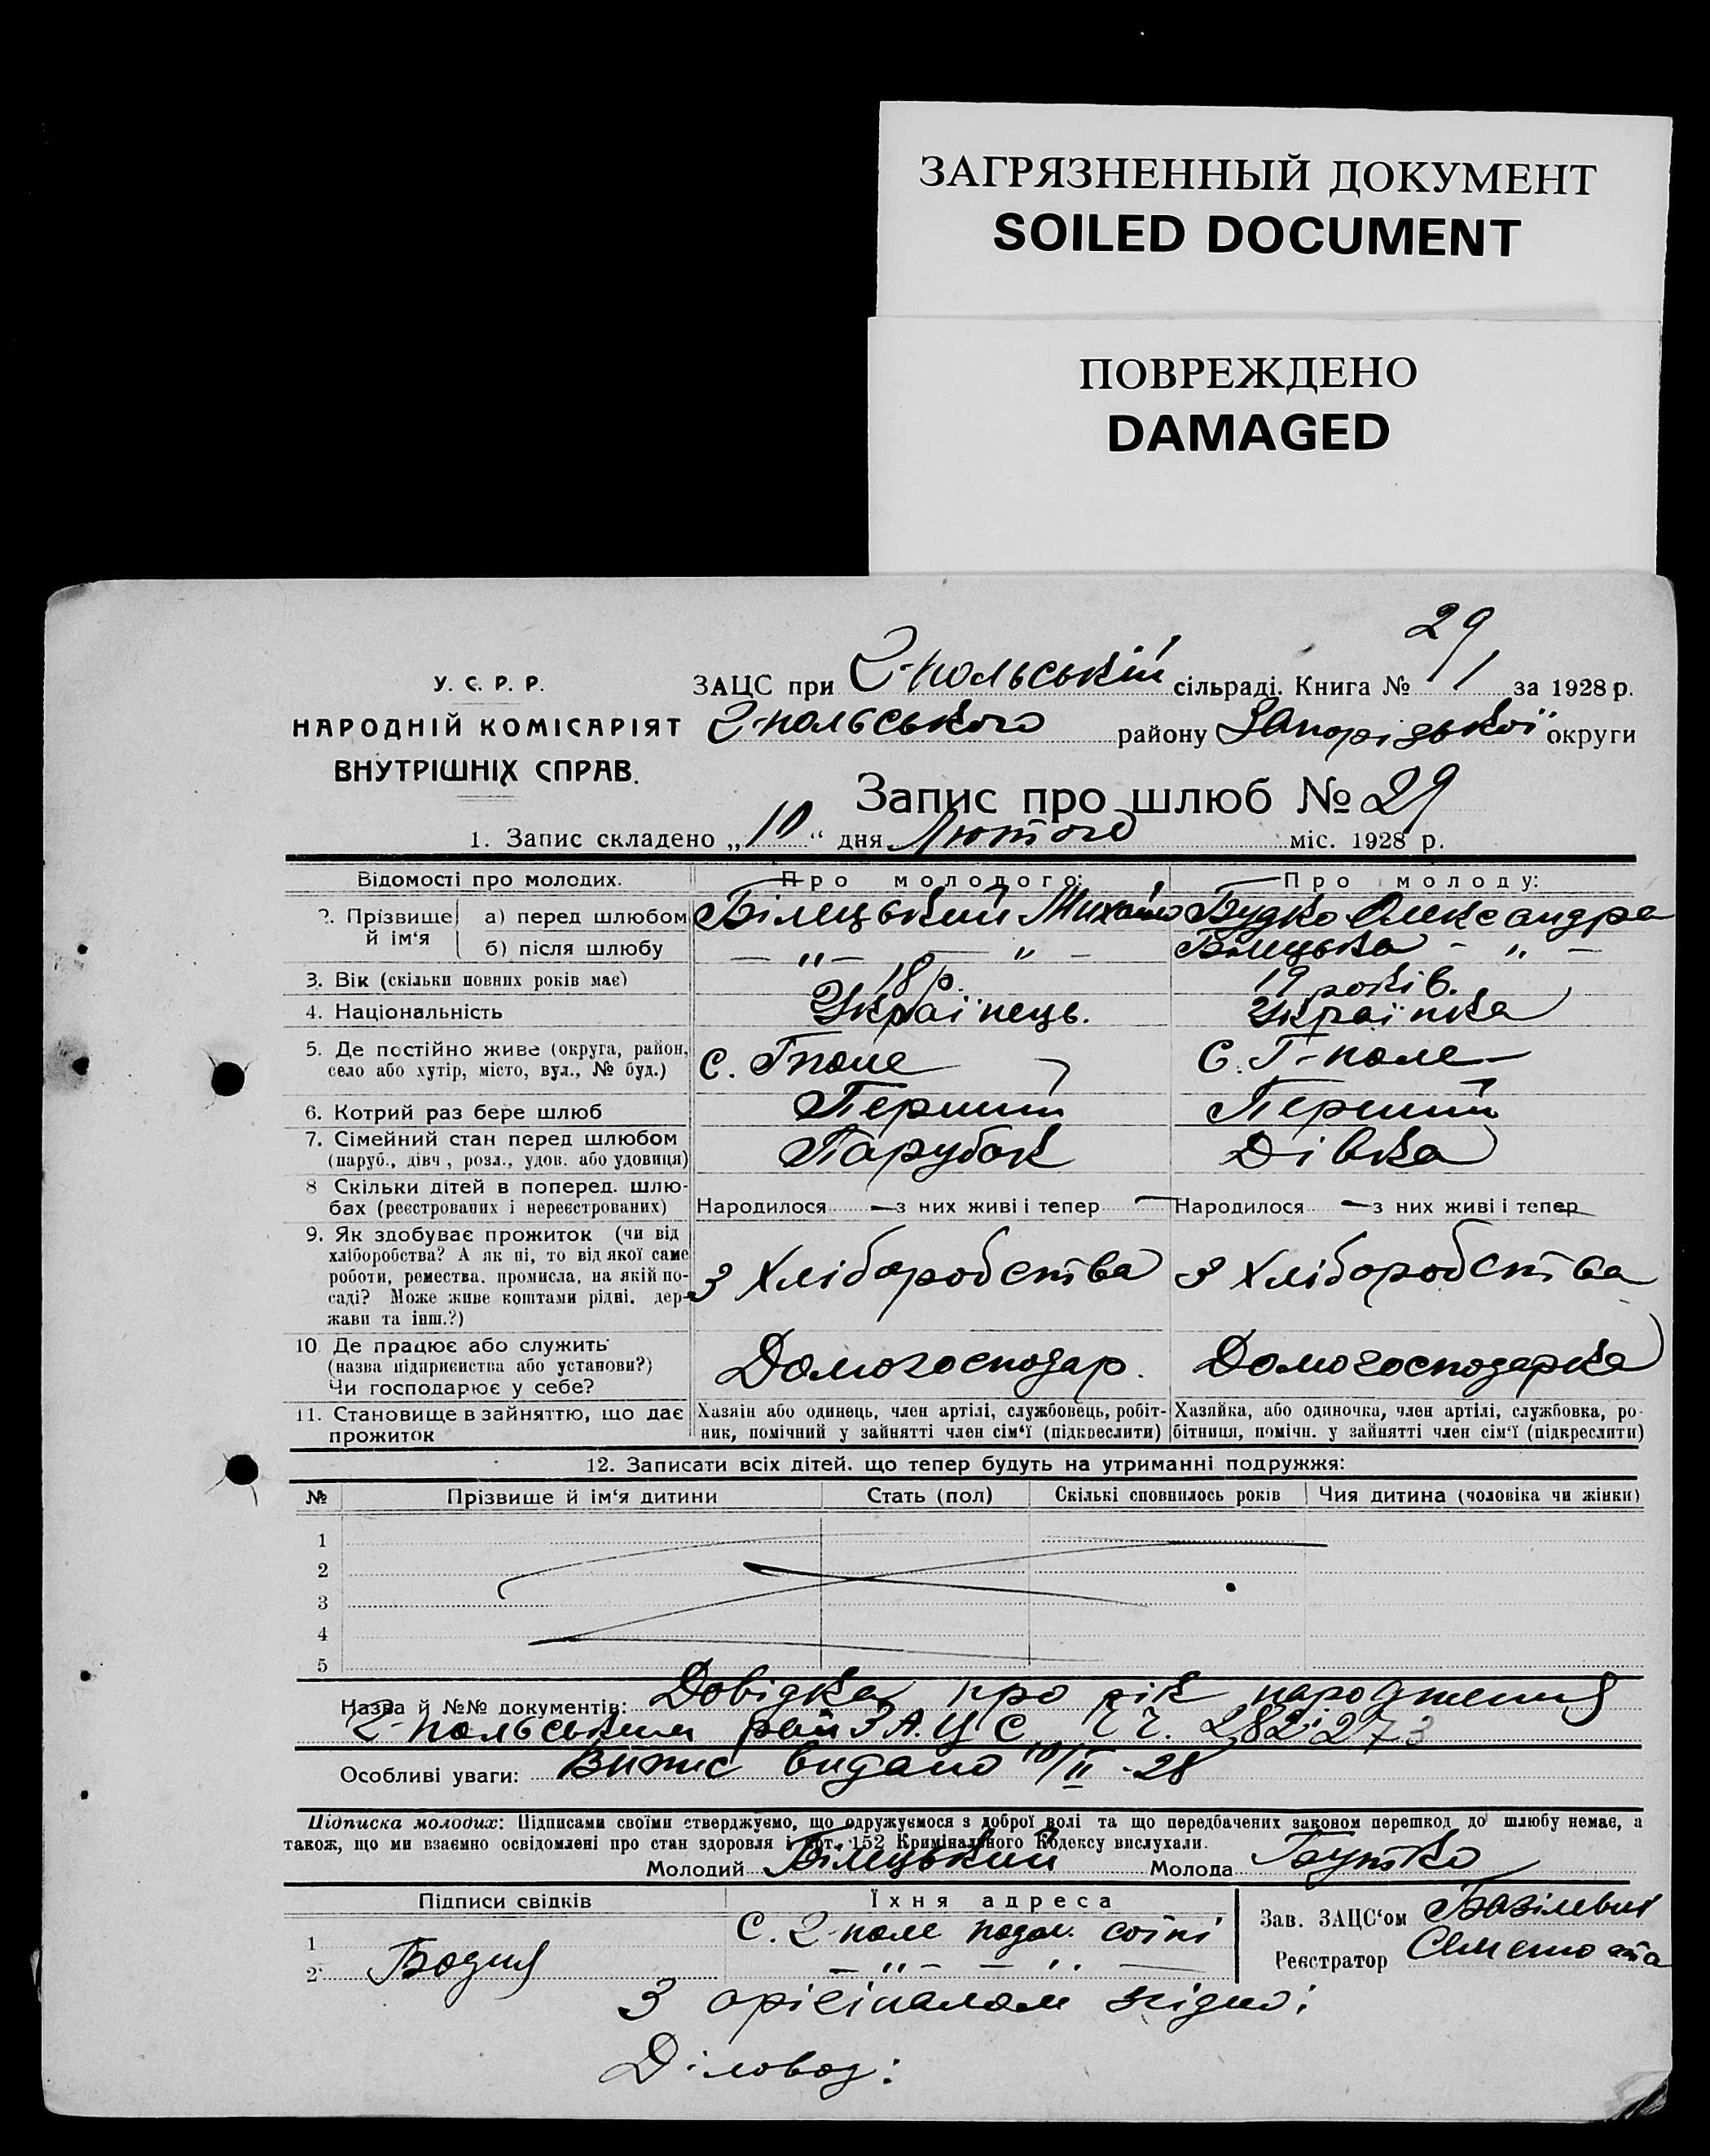 ЗАГРЯЗНЕННЫЙ ДОКУМЕНТ
SOILED DOCUMENT
ПОВРЕЖДЕНО
DAMAGED
29
У. С. Р. Р.
НАРОДНІЙ КОМІСАРІЯТ
ВНУТРІШНІХ СПРАВ.
ЗАЦС при Г-польській сільраді. Книга № 1 за 1928 р.
Г-польського району Запорізької округи
Запис про шлюб № 29
1. Запис складено „10“ дня Лютого міс. 1928 р.
Відомості про молодих. Про молодого: Про молоду:
2. Прізвище й ім‘я а) перед шлюбом Білецький Михайло Будко Олександра
б) після шлюбу — „ — — „ — Білецька - „ -
3. Вік (скільки повних років має) 18 р. 19 років.
4. Національність Українець. Українка
5. Де постійно живе (округа, район, село або хутір, місто, вул., № буд.) с. Гполе С. Г-поле
6. Котрий раз бере шлюб Перший Перший
7. Сімейний стан перед шлюбом (паруб., дівч., розл., удов. або удовиця) Парубок Дівка
8 Скільки дітей в поперед. шлюбах (реєстрованих і нереєстрованих) Народилося — з них живі і тепер — Народилося — з них живі і тепер —
9. Як здобуває прожиток (чи від хліборобства? А як ні, то від якої саме роботи, ремества, промисла, на якій посаді? Може живе коштами рідні, держави та інш.?) З Хліборобства З Хліборобства
10. Де працює або служить (назва підприємства або установи?) Чи господарює у себе? Домогосподар. Домогосподарка
11. Становище в зайняттю, що дає прожиток Хазяін або одинець, член артілі, службовець, робітник, помічний у зайнятті член сім‘ї (підкреслити) Хазяйка, або одиночка, член артілі, службовка, робітниця, помічн. у зайнятті член сім‘ї (підкреслити)
12. Записати всіх дітей, що тепер будуть на утриманні подружжя:
№ Прізвище й ім‘я дитини Стать (пол) Скількі сповнилось років Чия дитина (чоловіка чи жінки)
1
2
3
4
5
Назва й №№ документів: Довідка про рік народження
Г-польським рай З.А.Ц.С 282; 273
Особливі уваги: Витис видано 10/II - 28
Підписка молодих: Підписами своїми стверджуємо, що одружуємося з доброї волі та що передбачених законом перешкод до шлюбу немає, а
також, що ми взаємно освідомлені про стан здоровля і арт. 152 Кримінального Кодексу вислухали.
Молодий Білецький Молода Бутко
Підписи свідків Їхня адреса
1 С. Г-поле подол. сотні
2 Бодня — „ — — „ —
Зав. ЗАЦС‘ом Базілевич
Реєстратор
З орігіналом згідно:
Діловод: